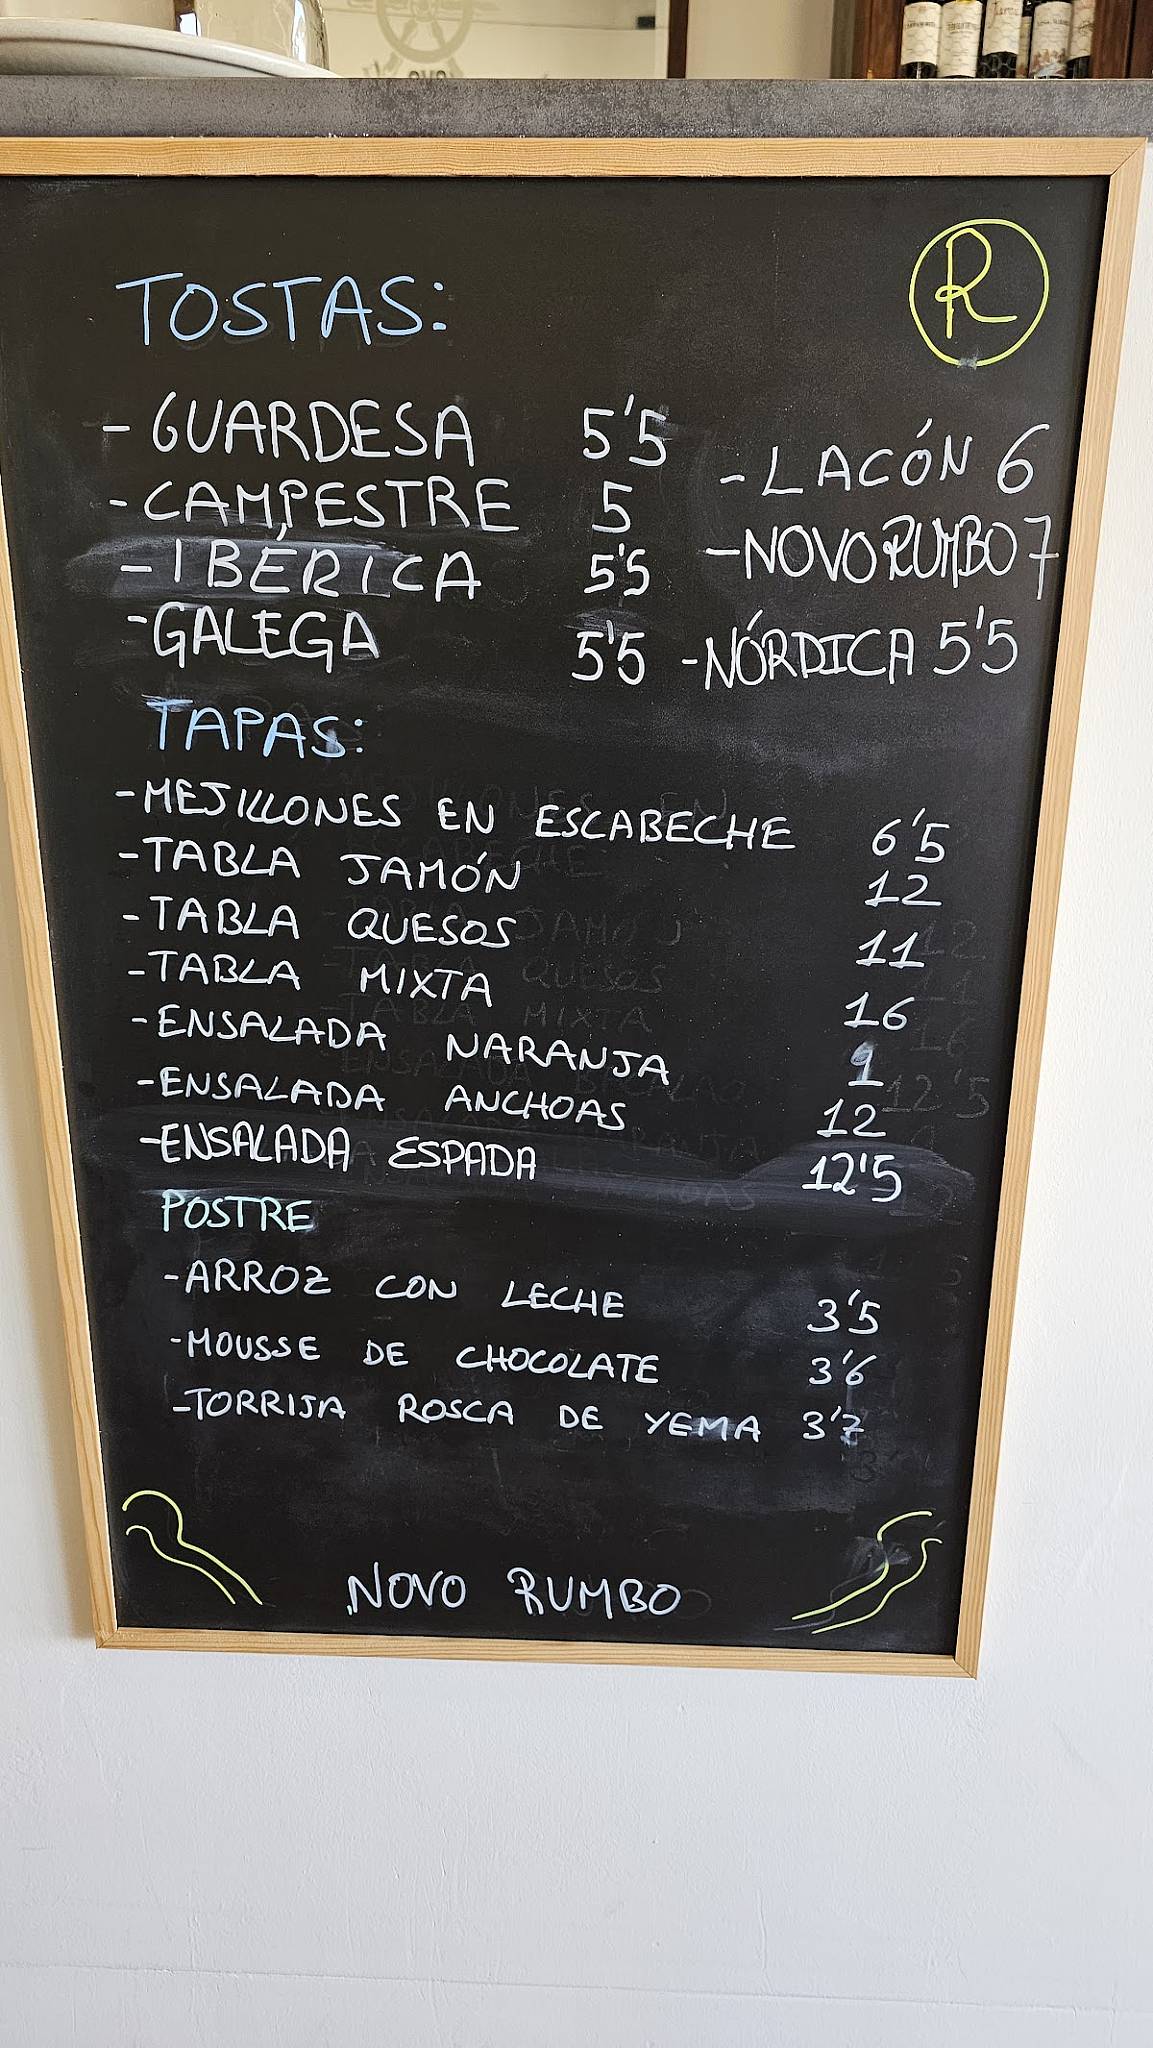 R
TOSTAS:
- GUARDESA 5'5
- CAMPESTRE 5
- IBÉRICA 5'5
- GALEGA 5'5
- LACÓN 6
- NOVO RUMBO 7
- NÓRDICA 5'5
TAPAS:
- MEJILLONES EN ESCABECHE 6'5
- TABLA JAMÓN 12
- TABLA QUESOS 11
- TABLA MIXTA 16
- ENSALADA NARANJA 9
- ENSALADA ANCHOAS 12
- ENSALADA ESPADA 12'5
POSTRE
- ARROZ CON LECHE 3'5
- MOUSSE DE CHOCOLATE 3'6
- TORRIJA ROSCA DE YEMA 3'7
NOVO RUMBO